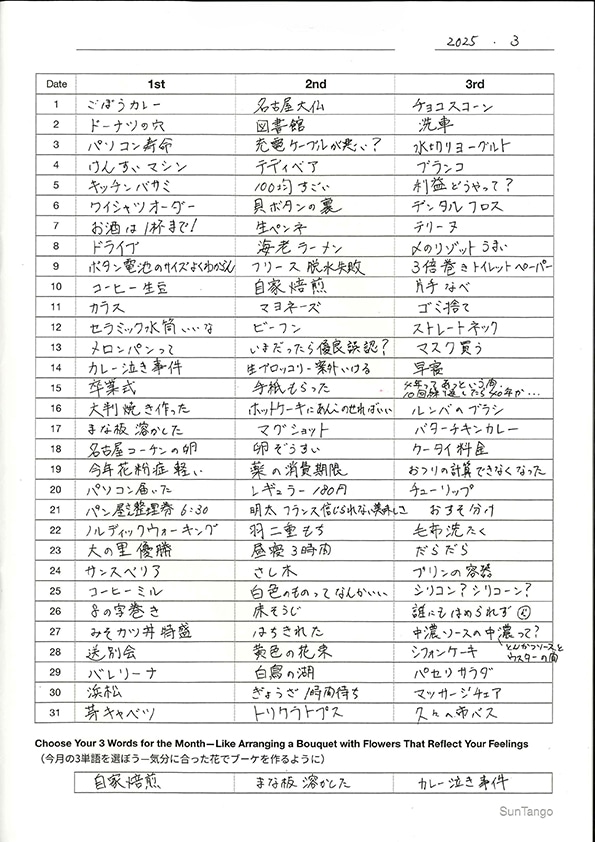 2025 . 3
Date 1st 2nd 3rd
1 ごぼうカレー 名古屋大仏 チョコスコーン
2 ドーナツの穴 図書館 洗車
3 パソコン寿命 充電ケーブルが悪い? 水切りヨーグルト
4 けんすいマシン テディベア ブランコ
5 キッチンバサミ 100均すごい 利益どうやって?
6 ワイシャツオーダー 貝ボタンの裏 デンタルフロス
7 お酒は1杯まで! 生ペンネ テリーヌ
8 ドライブ 海老ラーメン 〆のリゾットうまい
9 ボタン電池のサイズよくわからん フリース脱水失敗 3倍巻きトイレットペーパー
10 コーヒー生豆 自家焙煎 片手なべ
11 カラス マヨネーズ ゴミ捨て
12 セラミック水筒いいな ビーフン ストレートネック
13 メロンパンって いまだったら優良誤認? マスク買う
14 カレー泣き事件 生ブロッコリー案外いける 早寝
15 卒業式 手紙もらった 4年ってあっという間、10回繰り返したら40年か…
16 大判焼き作った ホットケーキにあんこのせればいい ルンバのブラシ
17 まな板溶かした マグショット バターチキンカレー
18 名古屋コーチンの卵 卵ぞうすい ケータイ料金
19 今年花粉症軽い 薬の消費期限 おつりの計算できなくなった
20 パソコン届いた レギュラー180円 チューリップ
21 パン屋整理券6:30 明太フランス信じられない美味しさ おすそ分け
22 ノルディックウォーキング 羽二重もち 毛布洗たく
23 大の里優勝 昼寝3時間 だらだら
24 サンスベリア さし木 プリンの容器
25 コーヒーミル 白色のものってなんかいい シリコン?シリコーン?
26 8の字巻き 床そうじ 誰にもほめられず
27 みそカツ丼特盛 はちきれた 中濃ソースの中濃って?
とんかつソースとウスターの間
28 送別会 黄色の花束 シフォンケーキ
29 バレリーナ 白鳥の湖 パセリサラダ
30 浜松 ぎょうざ1時間待ち マッサージチェア
31 芽キャベツ トリケラトプス 久々の市バス
Choose Your 3 Words for the Month—Like Arranging a Bouquet with Flowers That Reflect Your Feelings
（今月の3単語を選ぼう—気分に合った花でブーケを作るように）
自家焙煎 まな板溶かした カレー泣き事件
SunTango